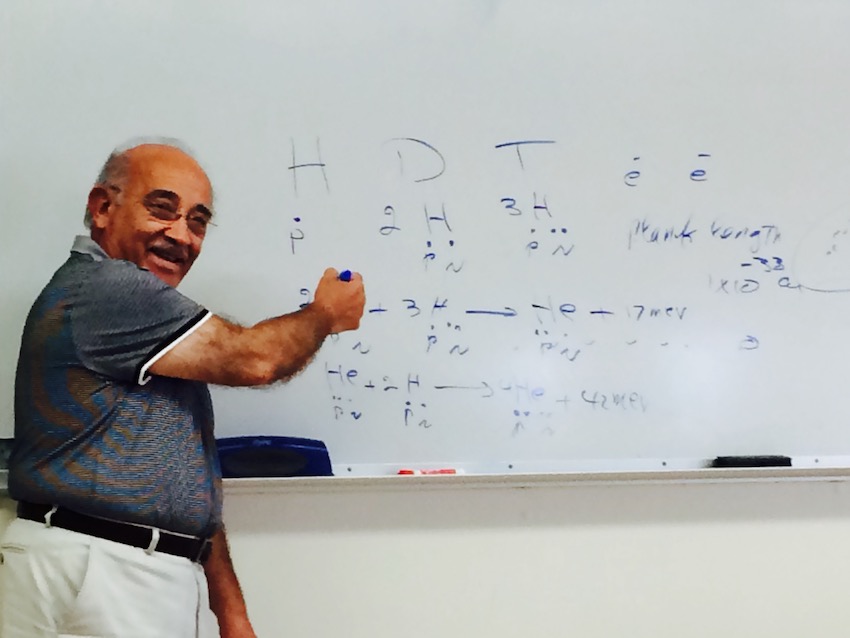 H D T ē ē
2 H 3 H
P P N P N Planck Length
1x10 -33 c
2 + 3 H → He + 17 mev
N P N P N
He + 2 H → He + 42 mev
P N P N P N